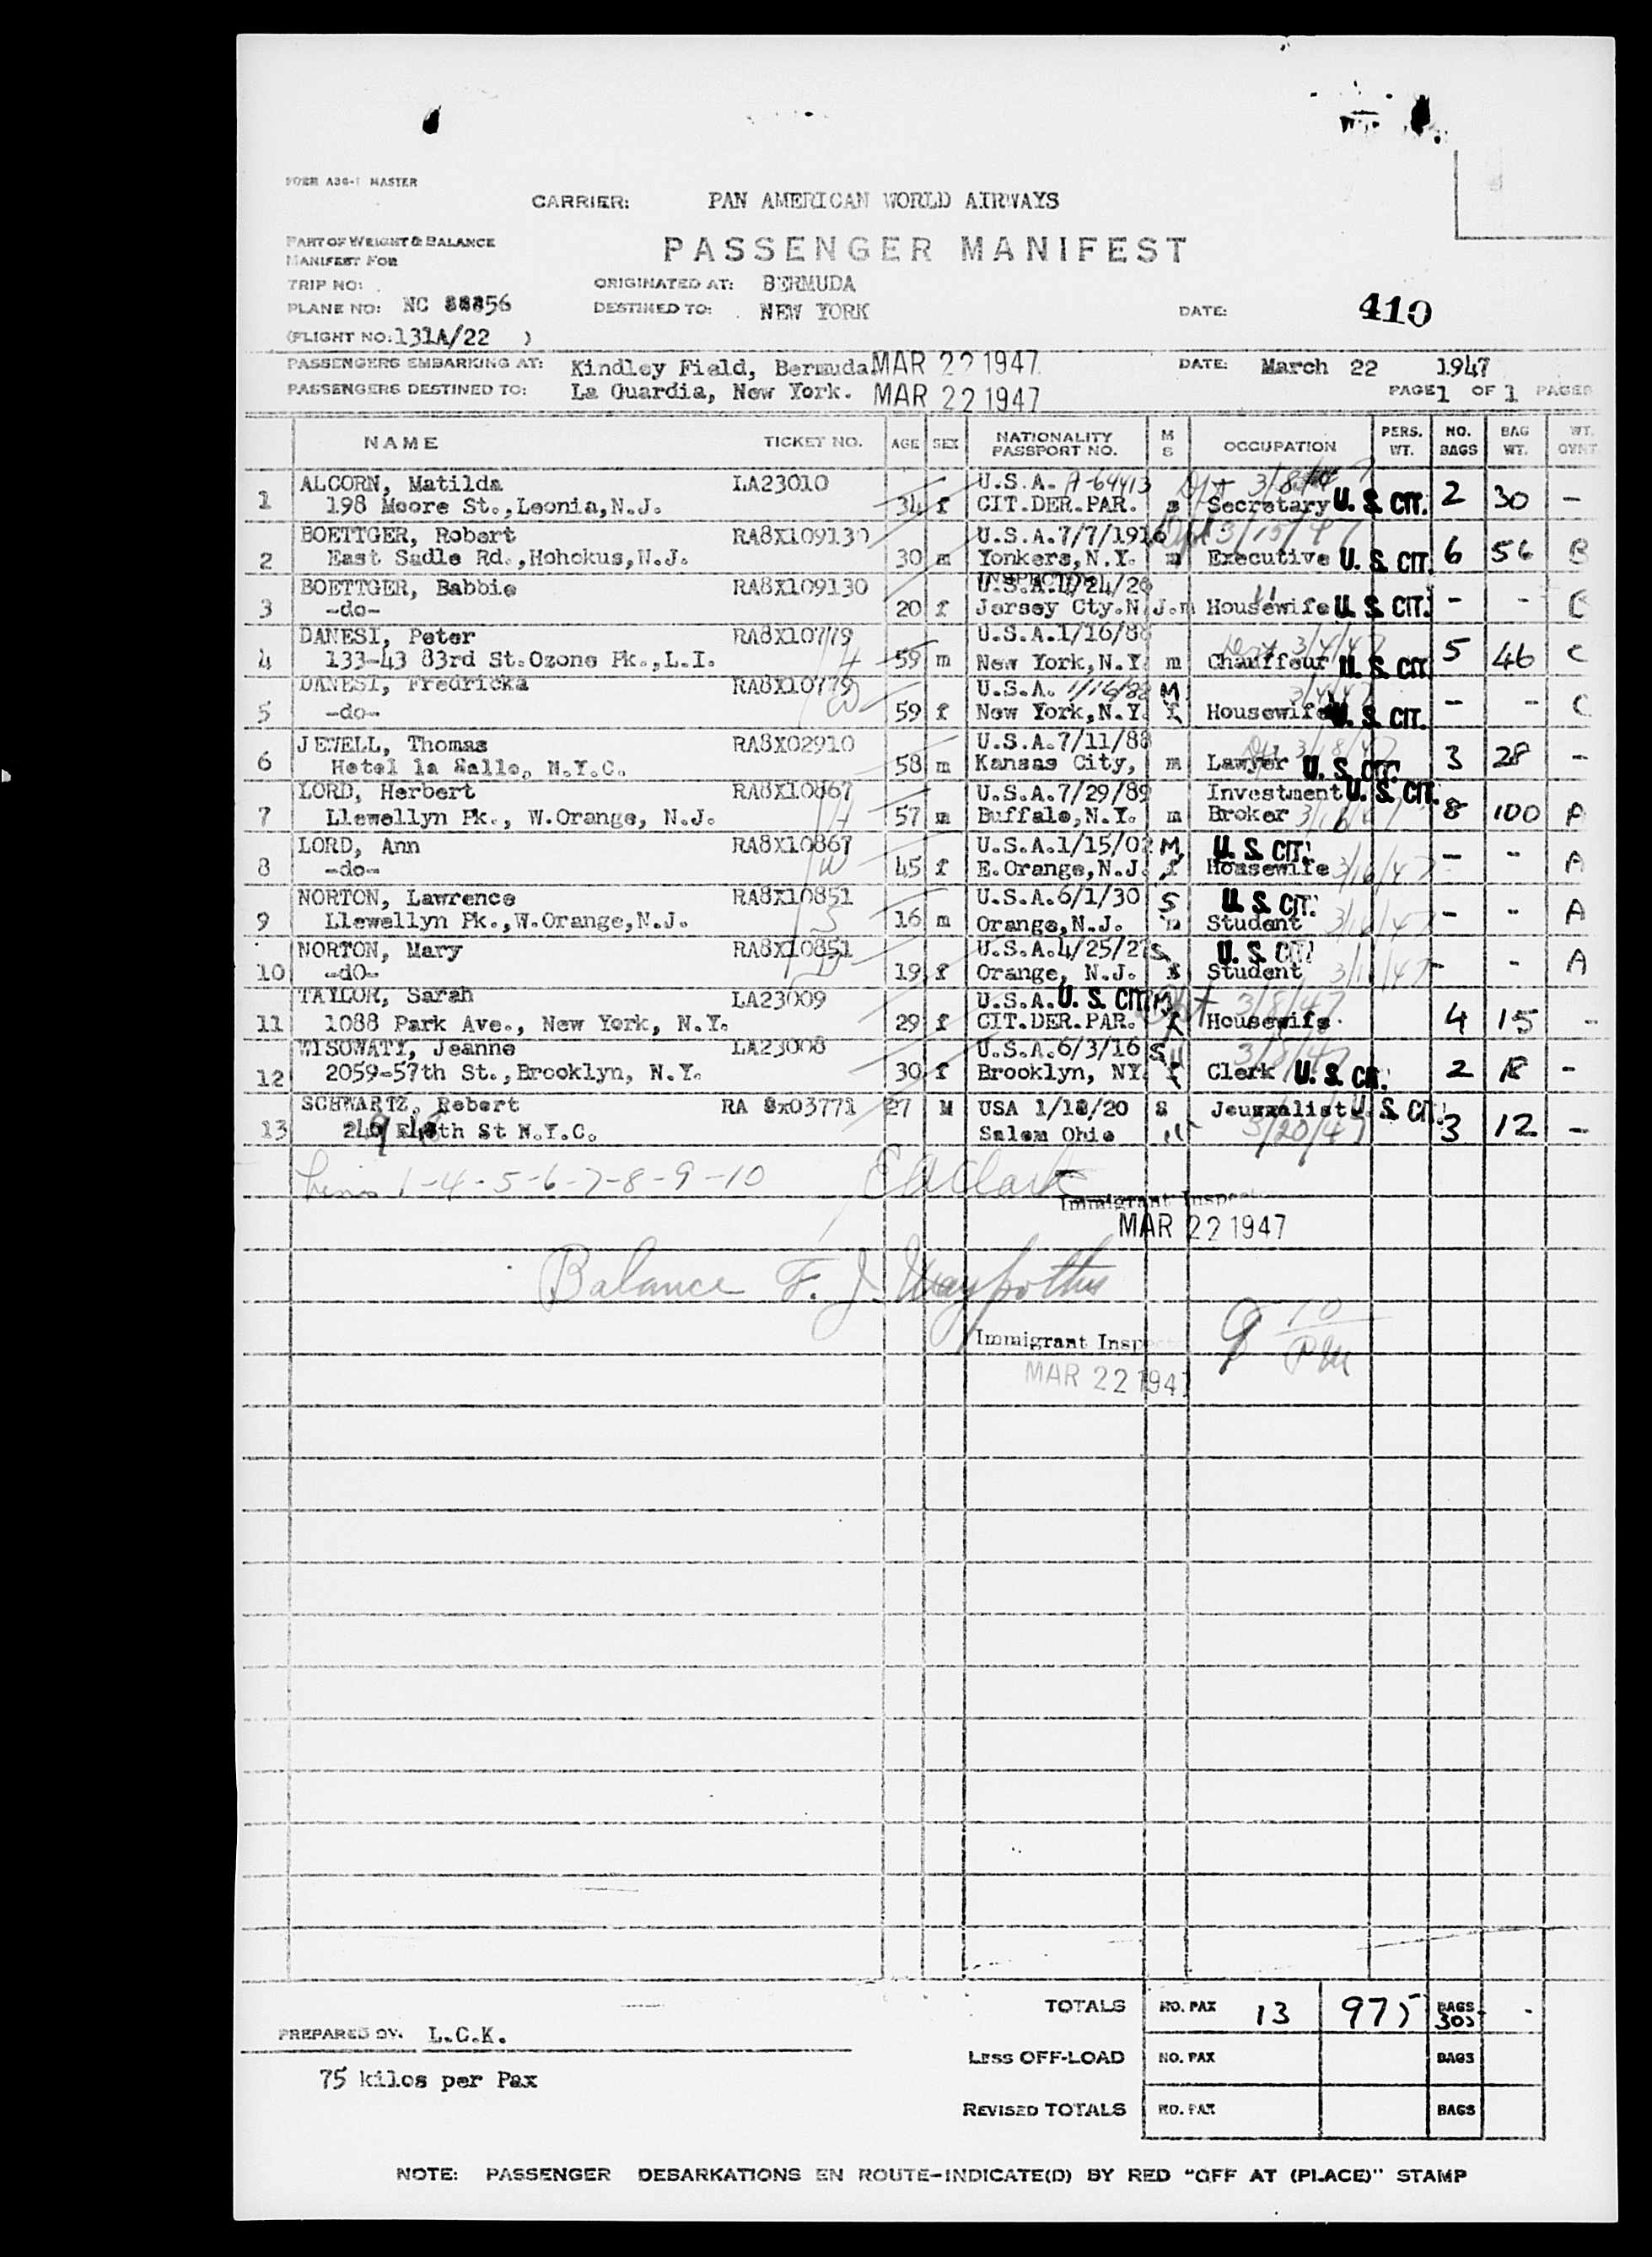 FORM A36-1 MASTER
CARRIER: PAN AMERICAN WORLD AIRWAYS
PART OF WEIGHT & BALANCE
MANIFEST FOR
PASSENGER MANIFEST
TRIP NO:
ORIGINATED AT: BERMUDA
PLANE NO: NC 88856
DESTINED TO: NEW YORK
DATE: 410
(FLIGHT NO: 131A/22 )
PASSENGERS EMBARKING AT: Kindley Field, Bermuda MAR 22 1947 DATE: March 22 1947
PASSENGERS DESTINED TO: La Guardia, New York. MAR 22 1947 PAGE 1 OF 1 PAGES
NAME TICKET NO. AGE SEX NATIONALITY PASSPORT NO. M S OCCUPATION PERS. WT. NO. BAGS BAG WT. WT.
ALCORN, Matilda LA23010 U.S.A. A-64413 3/8/47
1 198 Moore St.,Leonia,N.J. 34 f CIT.DER.PAR. s Secretary U. S. CIT. 2 30 -
BOETTGER, Robert RA8X109130 U.S.A.7/7/1916 3/15/47
2 East Sadle Rd.,Hohokus,N.J. 30 m Yonkers,N.Y. m Executive U. S. CIT. 6 56 B
BOETTGER, Babbie RA8X109130 U.S.A. /24/26
3 -do- 20 f Jersey Cty.N.J.m Housewife U. S. CIT. - -
DANESI, Peter RA8X10779 U.S.A.1/16/88 3/4/47
4 133-43 83rd St.Ozone Pk.,L.I. H 59 m New York,N.Y. m Chauffeur U. S. CIT 5 46 C
DANESI, Fredricka RA8X10779 U.S.A. 1/16/88 M 3/4/47
5 -do- W 59 f New York,N.Y. Housewife U. S. CIT. - - C
JEWELL, Thomas RA8X02910 U.S.A.7/11/88 3/8/47
6 Hotel la Salle, N.Y.C. 58 m Kansas City, m Lawyer U. S. CIT. 3 28 -
LORD, Herbert RA8X10867 U.S.A.7/29/89 Investment U. S. CIT.
7 Llewellyn Pk., W.Orange, N.J. H 57 m Buffalo,N.Y. m Broker 3/16/47 8 100 A
LORD, Ann RA8X10867 U.S.A.1/15/02 M U. S. CIT.
8 -do- W 45 f E.Orange,N.J. f Housewife 3/16/47 - - A
NORTON, Lawrence RA8X10851 U.S.A.6/1/30 S U. S. CIT.
9 Llewellyn Pk.,W.Orange,N.J. S 16 m Orange,N.J. Student 3/16/47 - - A
NORTON, Mary RA8X10851 U.S.A.4/25/27 S U. S. CIT
10 -dO- D 19 f Orange, N.J. Student 3/16/47 - - A
TAYLOR, Sarah LA23009 U.S.A. U. S. CIT. M 3/8/47
11 1088 Park Ave., New York, N.Y. 29 f CIT.DER.PAR. Housewife 4 15 -
WISOWATY, Jeanne LA23008 U.S.A.6/3/16 S 3/8/47
12 2059-57th St.,Brooklyn, N.Y. 30 f Brooklyn, NY. Clerk U. S. CIT. 2 18 -
SCHWARTZ, Robert RA 8x03771 27 M USA 1/18/20 S U. S. CIT.
13 th St N.Y.C. Salem Ohio 3/20/47 3 12 -
Lines 1-4-5-6-7-8-9-10 E A Clark
Immigrant Inspect
MAR 22 1947
Balance F. J.
Immigrant Insp
MAR 22 1947
9 10 PM
TOTALS NO. PAX 13 975 BAGS 305 -
PREPARED BY: L.C.K.
LESS OFF-LOAD NO. PAX BAGS
75 kilos per Pax
REVISED TOTALS NO. PAX BAGS
NOTE: PASSENGER DEBARKATIONS EN ROUTE-INDICATE(D) BY RED "OFF AT (PLACE)" STAMP